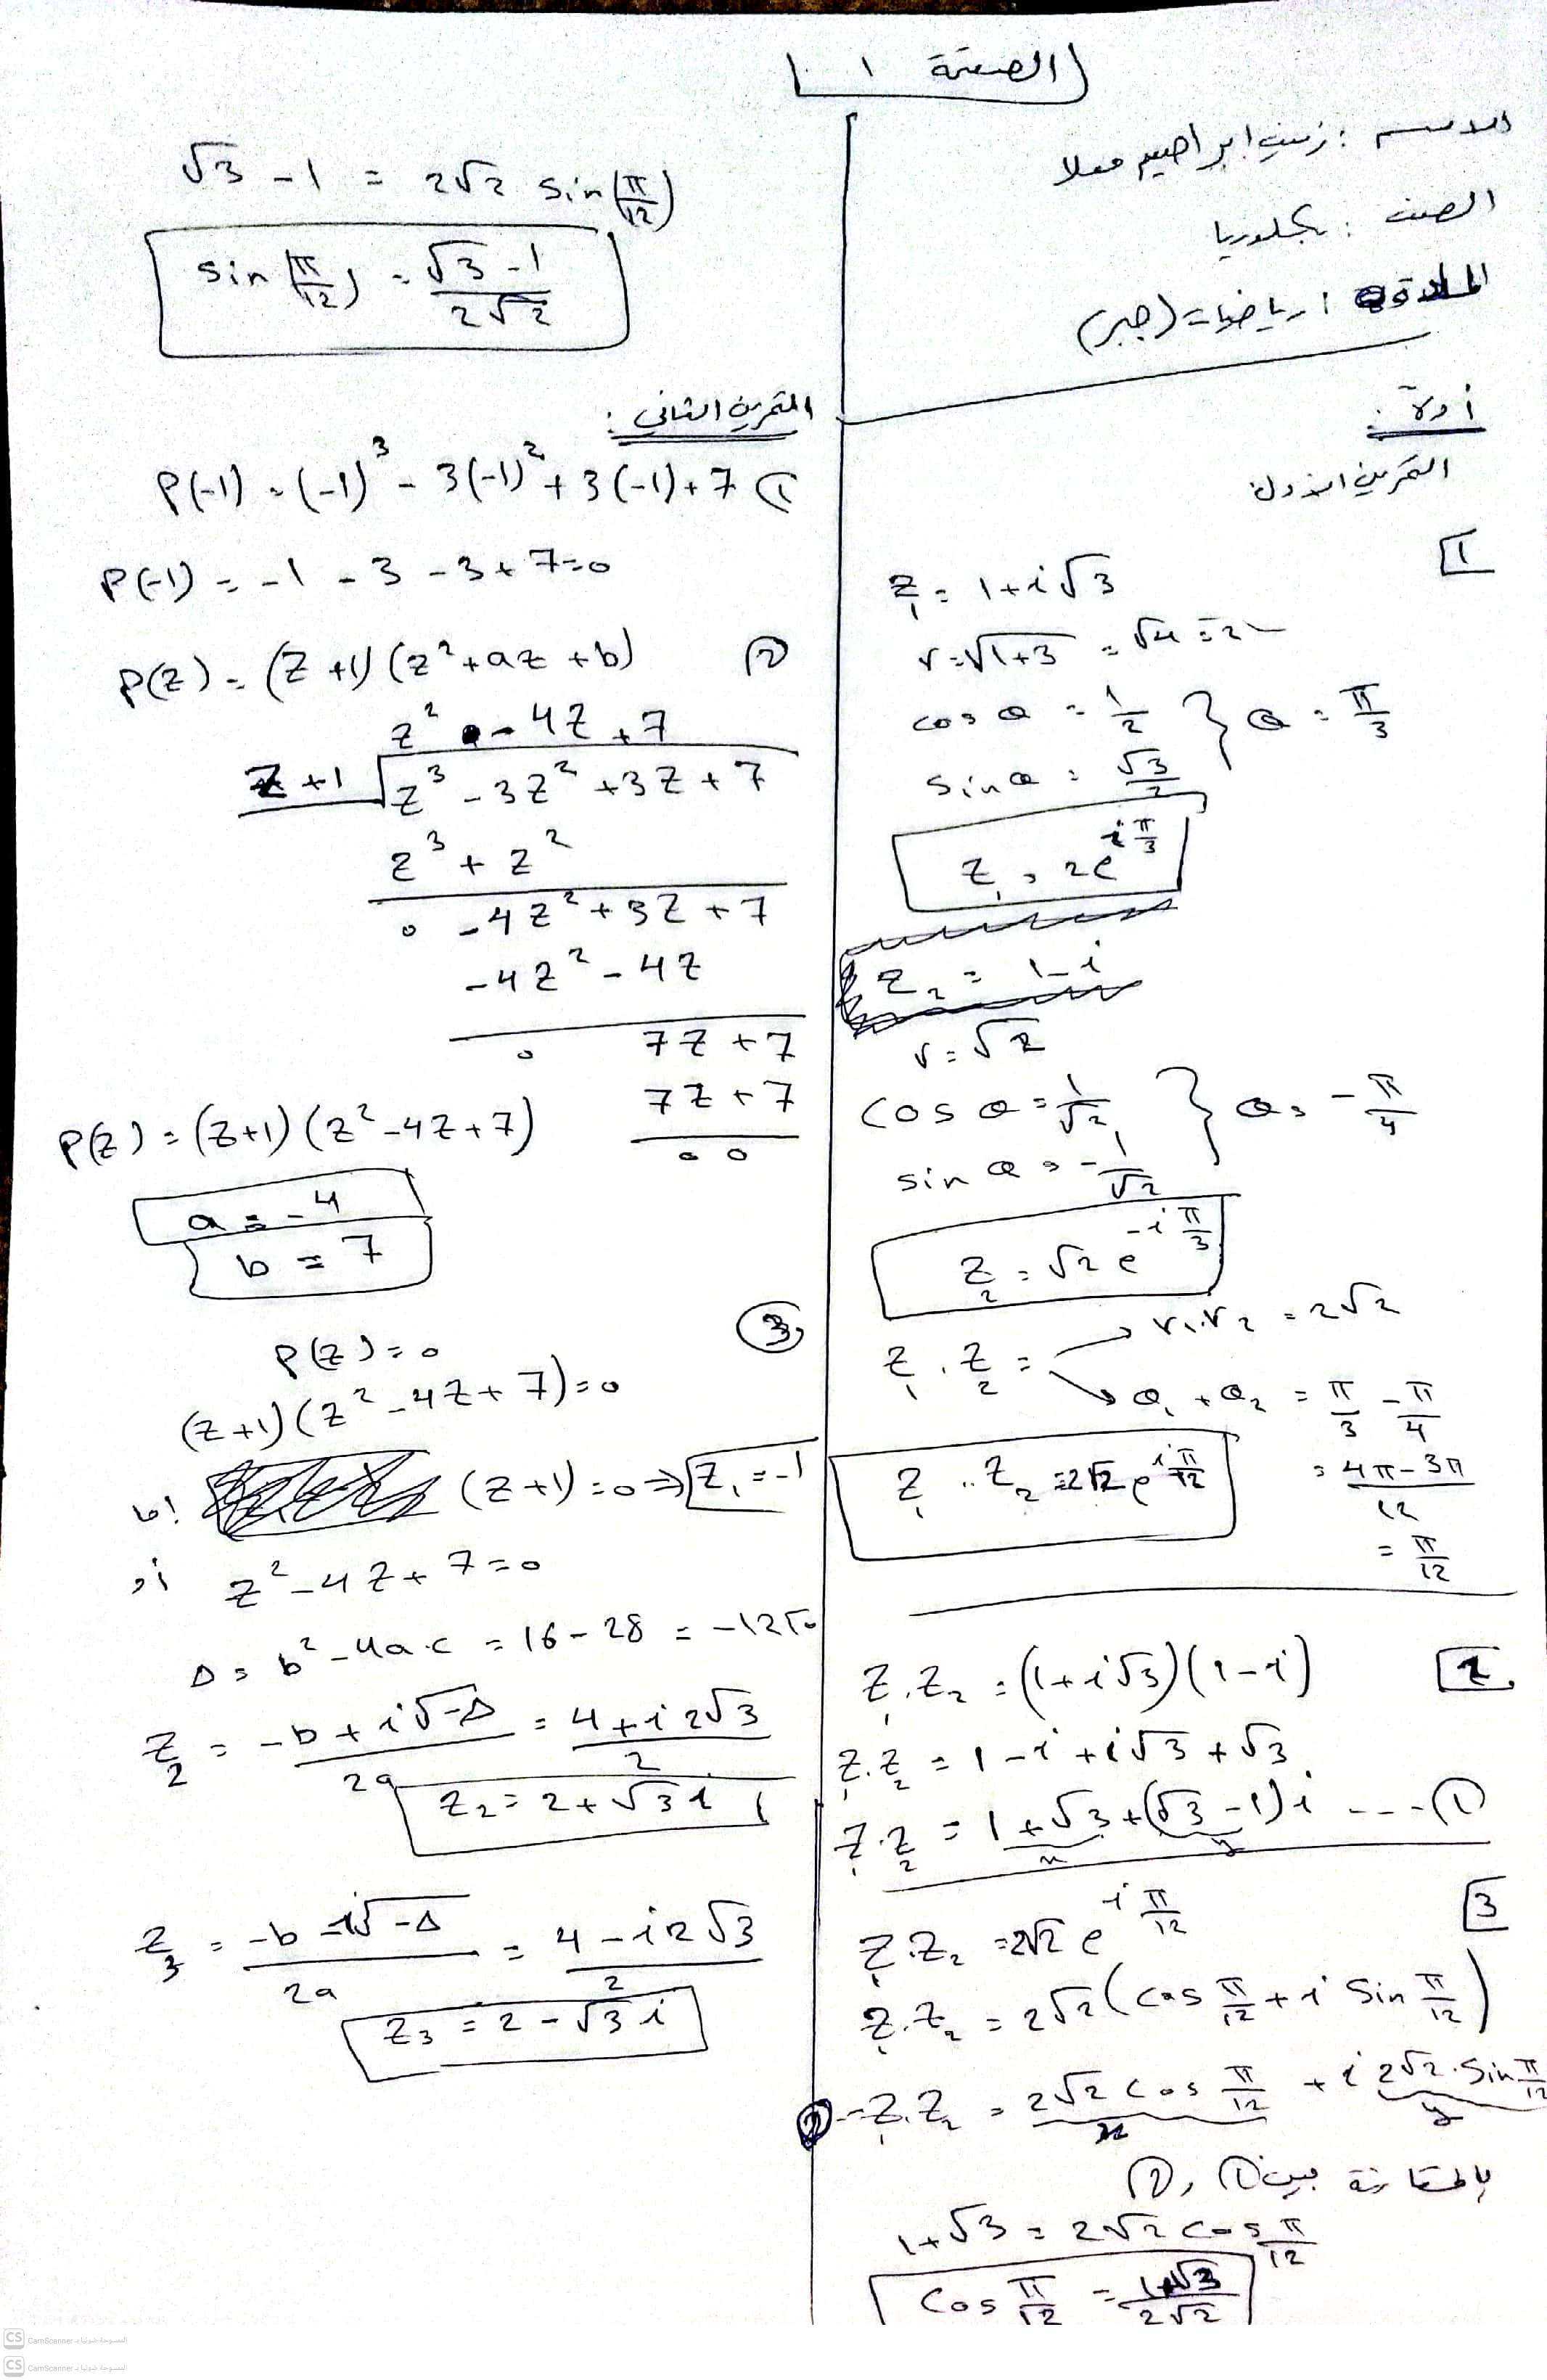 الصفحة ١
الاسم : زينب ابراهيم معلا
الصف : بكلوريا
المادة : رياضيات (جبر)
أولاً :
التمرين الاول
1
z₁ = 1+i√3
r = √1+3 = √4 = 2
cos θ = 1/2 } θ = π/3
sin θ = √3/2
z₁ = 2e^{iπ/3}
z₂ = 1-i
r = √2
cos θ = 1/√2 } θ = -π/4
sin θ = -1/√2
z₂ = √2 e^{-iπ/3}
z₁ . z₂ = → r₁.r₂ = 2√2
→ θ₁ + θ₂ = π/3 - π/4
= 4π-3π/12
= π/12
z₁ . z₂ = 2√2 e^{iπ/12}
2
z₁.z₂ = (1+i√3)(1-i)
z₁.z₂ = 1-i+i√3+√3
z₁.z₂ = 1+√3+(√3-1)i ---①
x y
3
z₁.z₂ = 2√2 e^{iπ/12}
z₁.z₂ = 2√2(cos π/12 + i sin π/12)
②-- z₁.z₂ = 2√2 cos π/12 + i 2√2 . sin π/12
x y
بالمقارنة بين ① , ②
1+√3 = 2√2 cos π/12
cos π/12 = 1+√3/2√2
√3 - 1 = 2√2 sin(π/12)
sin(π/12) = √3-1/2√2
التمرين الثاني :
P(-1) = (-1)³ - 3(-1)² + 3(-1) + 7 ①
P(-1) = -1 - 3 - 3 + 7 = 0
P(z) = (z+1)(z²+az+b) ②
z² - 4z + 7
z+1 z³ - 3z² + 3z + 7
z³ + z²
0 -4z² + 3z + 7
-4z² - 4z
0 7z + 7
7z + 7
0 0
P(z) = (z+1)(z²-4z+7)
a = -4
b = 7
③
P(z) = 0
(z+1)(z²-4z+7) = 0
إما (z+1) = 0 ⇒ z₁ = -1
أو z²-4z+7 = 0
Δ = b²-4a.c = 16-28 = -12 < 0
z₂ = -b+i√-Δ/2a = 4+i2√3/2
z₂ = 2+√3 i
z₃ = -b-i√-Δ/2a = 4-i2√3/2
z₃ = 2-√3 i
CS CamScanner الممسوحة ضوئيا بـ
CS CamScanner الممسوحة ضوئيا بـ